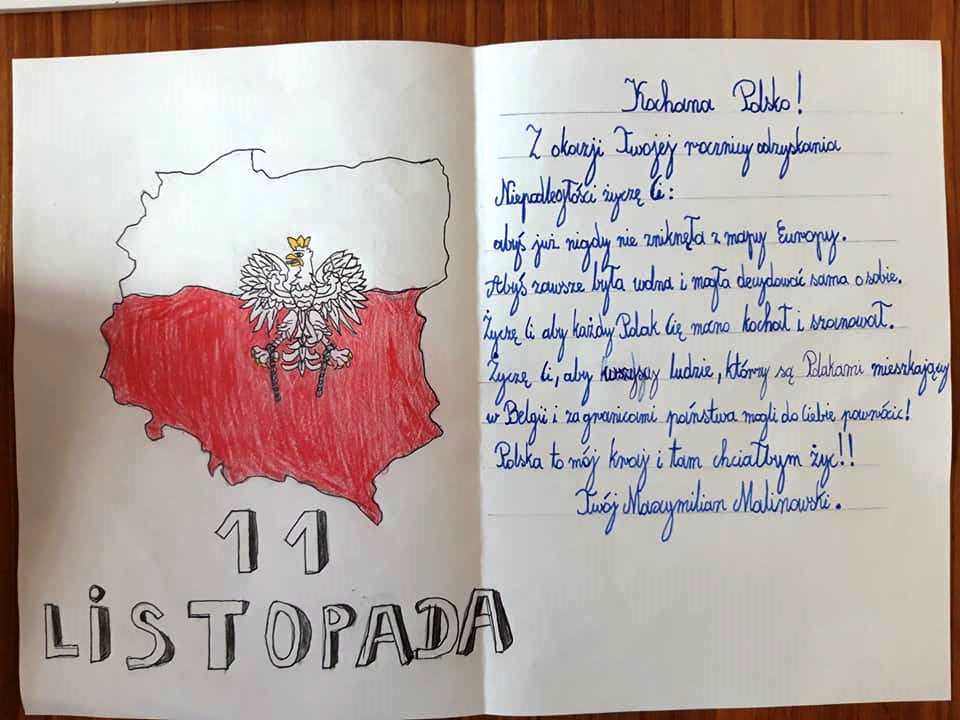 11
LiSTOPADA
Kochana Polsko!
Z okazji Twojej rocznicy odzyskania
Niepodległości życzę Ci:
abyś już nigdy nie zniknęła z mapy Europy.
Abyś zawsze była wolna i mogła decydować sama o sobie.
Życzę Ci aby każdy Polak Cię mano kochał i szanował.
Życzę Ci, aby ludzie, którzy są Polakami mieszkający
w Belgii i za granicami państwa mogli do Ciebie powrócić!
Polska to mój kraj i tam chciałbym żyć!!
Twój Maxymilian Malinowski.